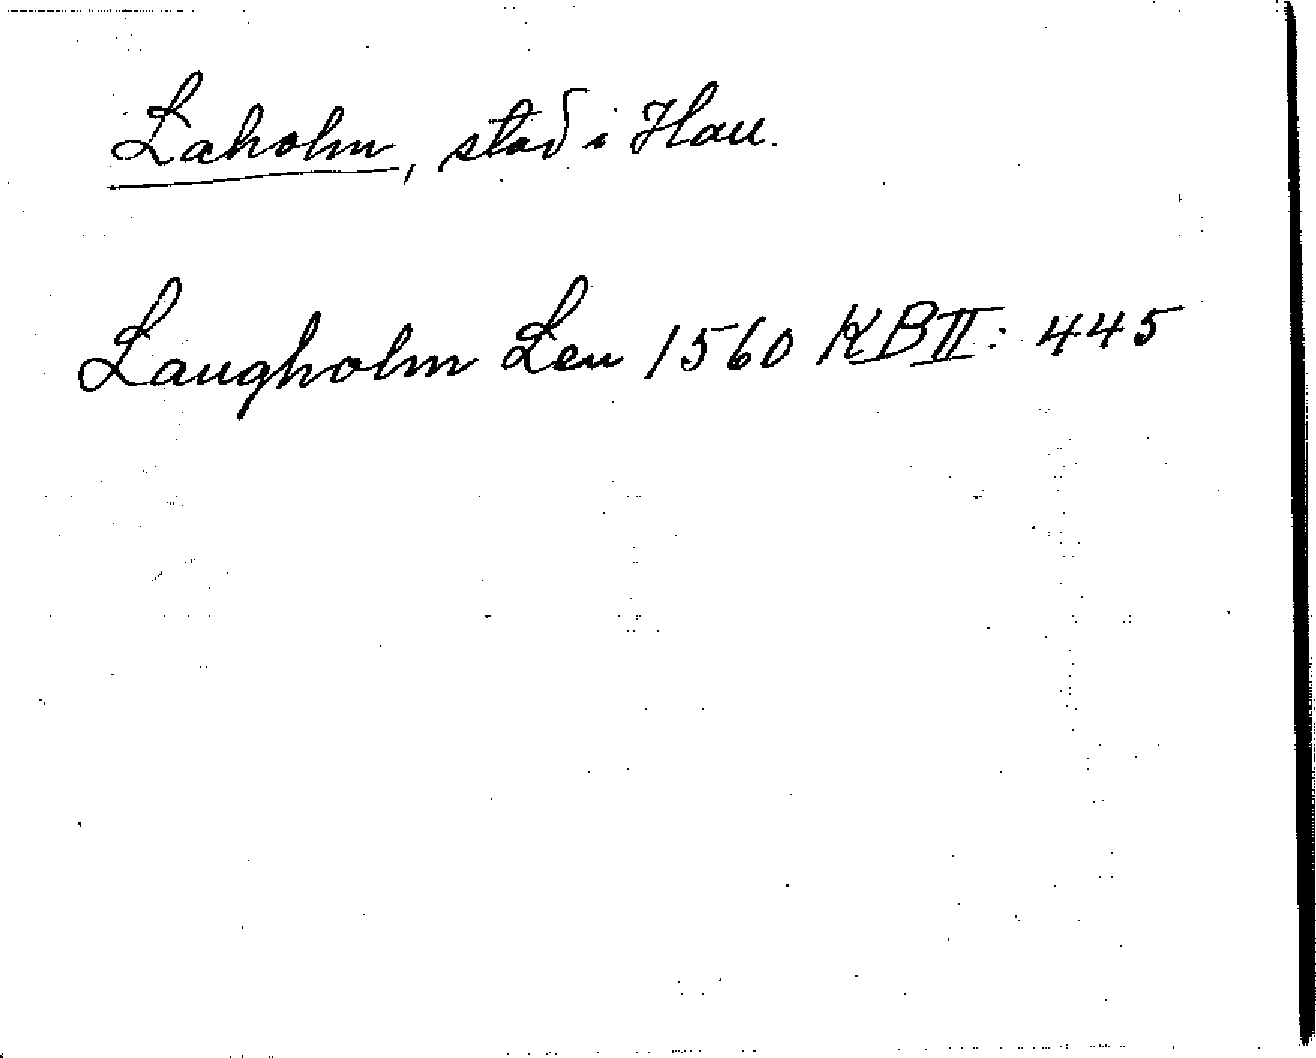 Laholm, stad i Hall.
Laugholm Len 1560 KB II: 445